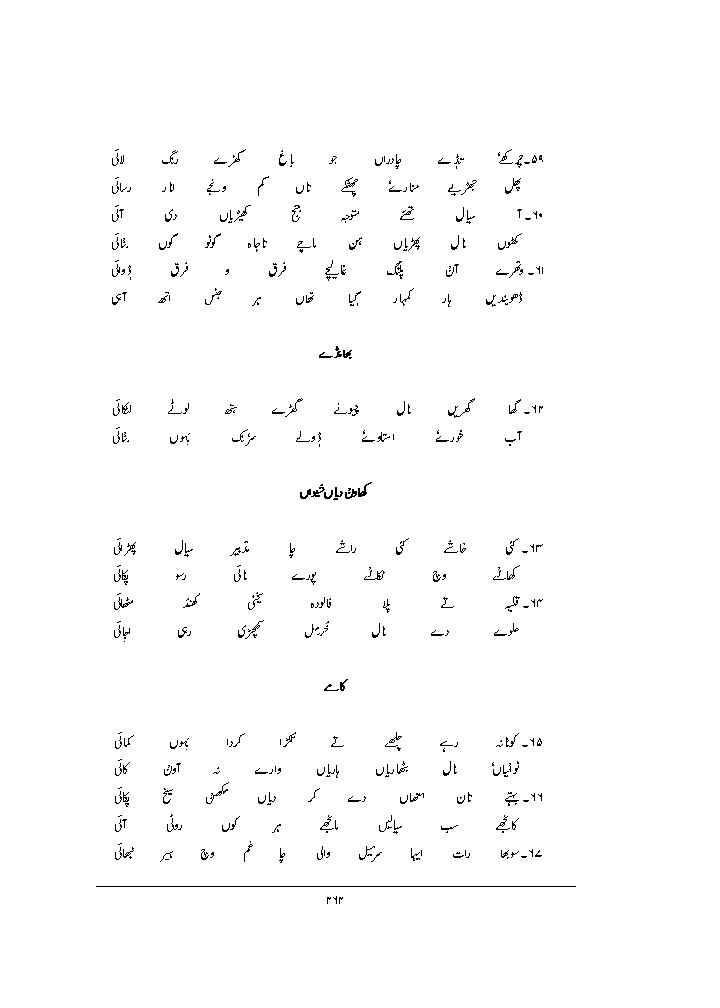 ۵۹۔ چرکھۓ سڈے چادراں جو باغ کھڑے رنگ لائی
پھل جھڑیے منارے چھٹکے تاں کم ونجے انار رسائی
۶۰۔ آ سیال تھئے متوجہ جنج کھیڑیاں دی آئی
کھٹوں نال پھڑیاں ہن ماچے تاجاہ کوٹو کوں بٹائی
۶۱۔ وتھرے آن پلنگ غالیچے فرق و فرق ڈوائی
ڈھویندیں ہار کمہار گیا تھاں ہر جنس اتھ آہی
بھانڈے
۶۲۔ گھا گھریں نال چونے گھڑے ہتھ لوٹے لٹکائی
آب خورے استاوے ڈولے سڑنک بہوں بٹائی
کھاون دیاں شیواں
۶۳۔ کئی خاشے کئی راشے چا تدبیر سیال پھڑائی
کھانے وچ ٹکانے پورے نائی رسو پکائی
۶۴۔ قلیہ تے پلا فالودہ یخنی کھنڈ مٹھائی
حلوے دے نال نخرمل کھچڑی رہی اجائی
کامے
۶۵۔ کوتانہ رہے چلھے تے نکڑا کردا بہوں کمائی
نونیاں نال بٹھاریاں ہاریاں وارے نہ آون کائی
۶۶۔ ہتے نان اتھاں دے کر دیاں مکھنی سیخ پکائی
کانجھے سب سیالیں مانجھے ہر کوں روٹی آئی
۶۷۔ سوبھا رات ایہا سرئیل والی چا غم وچ ہیر نبھائی
۳۶۳